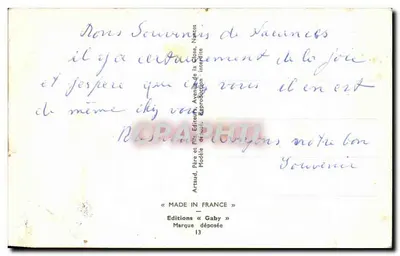 Bons Souvenirs de Vacances
il y a certainement de la joie
et j'espère que chez vous il en est
de même chez vous
envoyons notre bon
Souvenir
Artaud, Père et Fils Editeurs, Avenue de la Close, Nantes
Reproduction interdite
« MADE IN FRANCE »
Editions « Gaby »
Marque déposée
13